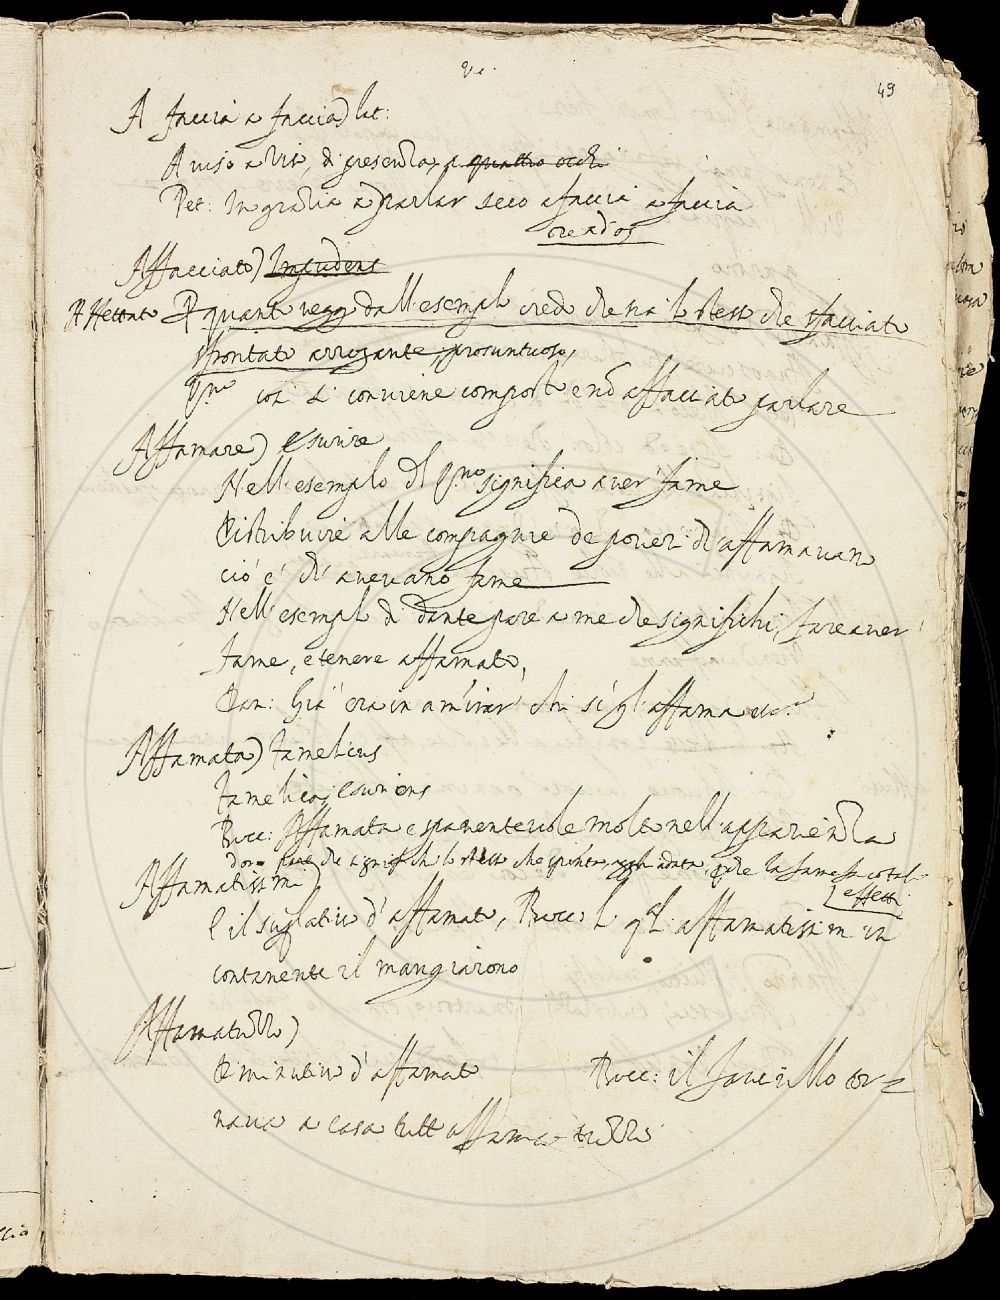 49
A faccia a faccia) lat:
A viso a viso, di presenza, a quattro occhi
Pet: In gratia a parlar seco a faccia a faccia
Affacciato) Impudens
Affettato Per quanto veggo dall'esempl credo che sia lo stesso che sfacciato
sfrontato arrogante, prosuntuoso,
così si conviene comport e nō affacciat parlare
Affamare) esurire
Nell'esemplo del significa aver fame
Distribuire alle compagnie de poveri ch'affamavan
cio è ch'avevano fame
Nell'esempl di dante pare a me che significhi, fare aver
fame, e tenere affamato,
Dan: Già era in amirar che sì gl'affama
Affamato) famelicus
famelico, esuriens
Bocc: Affamata e spaventevole molto nell'apparenza
pare che significhi lo stesso che la fame fa cotal
effetti
Affamatissimi)
È il suplativo d'affamato, Bocc: affamatissimi in
contanente il mangiarono
Affamatuzzo)
Diminutivo d'affamato Bocc: il fanciullo tor=
nava a casa tutt affamatuzzo